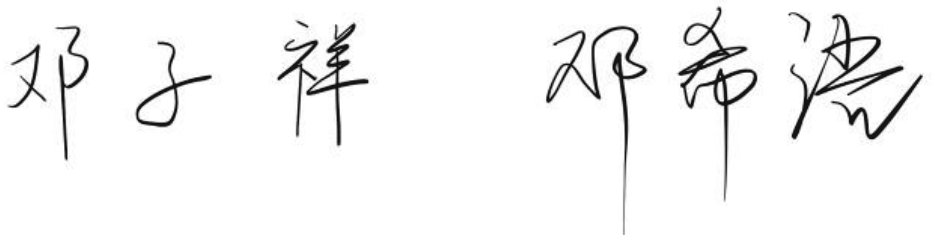 邓子祥 邓希